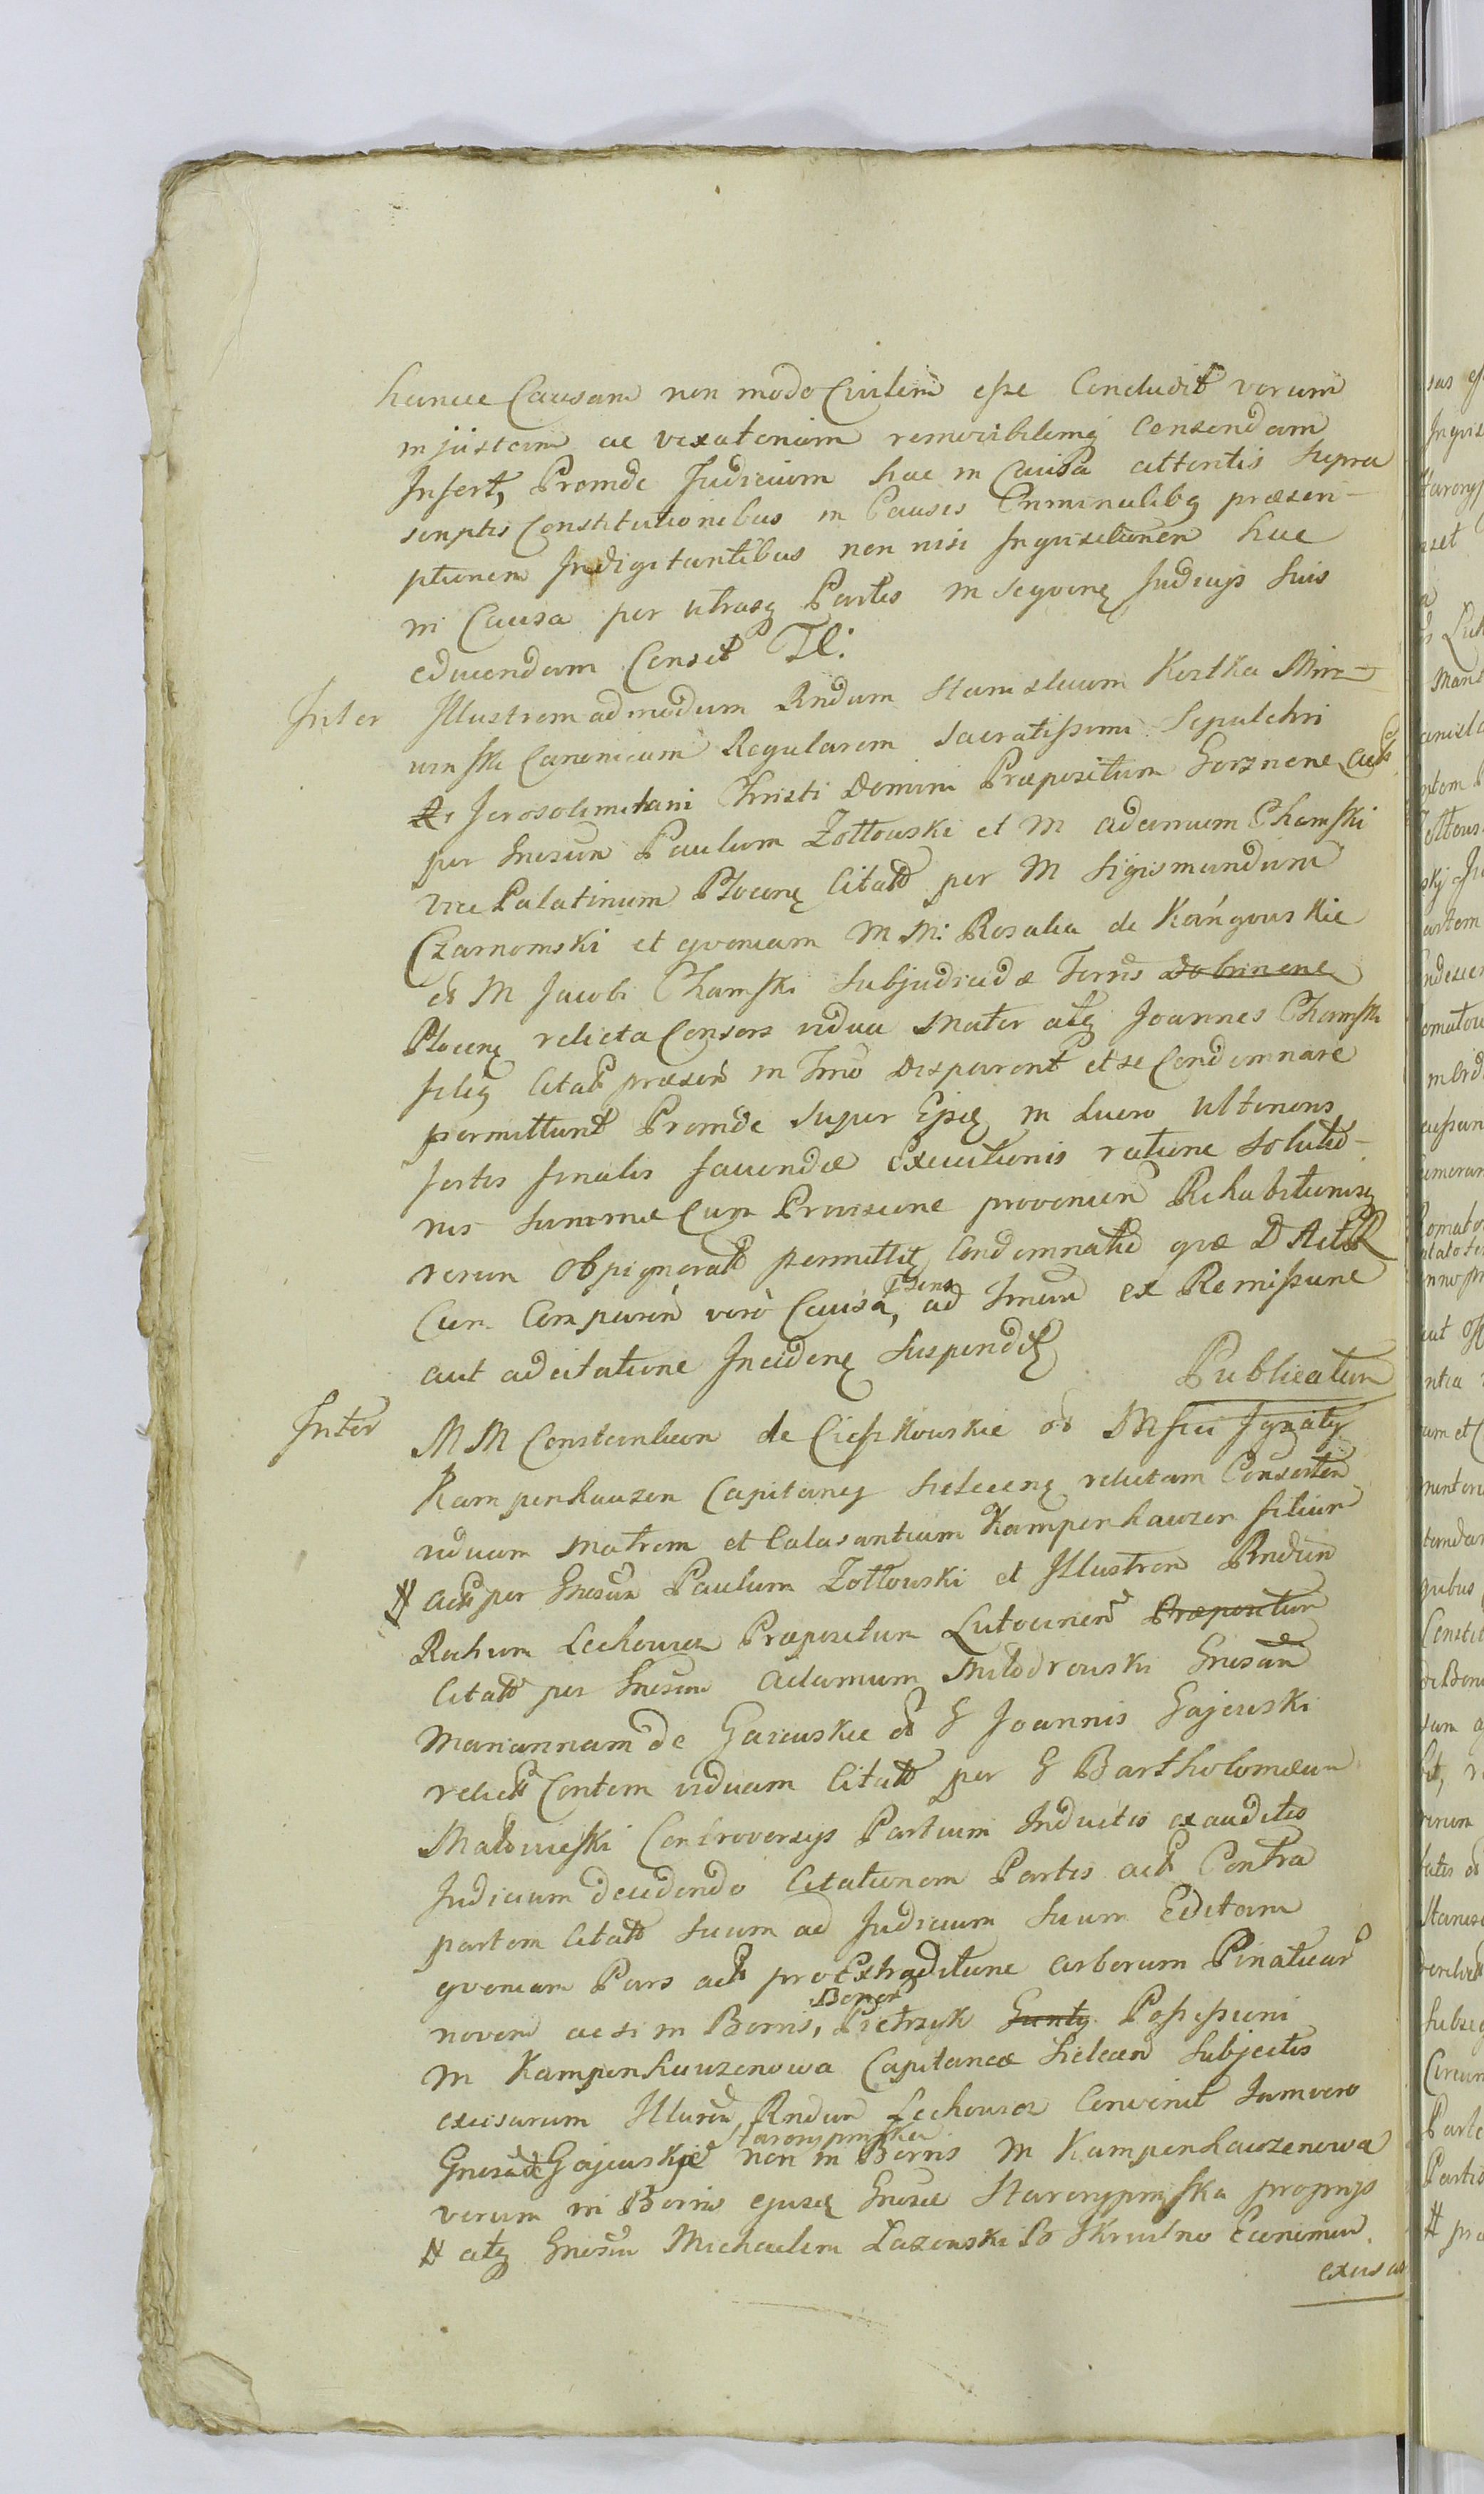 hancce Causam non modo Civilem esse Concludit verum
injustam ac vexatoriam removibilemq Censendam
Infert, Proinde Judicium hac in Causa attentis supra
scriptis Constitutionibus in Causis Criminalibq præscri-
ptionem Indigitantibus non nisi Inquisitionem hac
in Causa per utrasq Partes in sequenę Judicijs suis
educendam Censet
Inter Illustrem admodum Rndum Stanislaum Kostka
Canonicum Regularem Sacratissimi Sepulchri
Jerosolimitani Christi Domini Præpositum Gorznenę Act
per Gnesum Paulum Zołtowski et M Adamum Chamski
Vice Palatinum Płocenę Citatt per M Sigismundum
Czarnomski et quoniam M M: Rosalia de
ol M Jacobi Chamski Subjudicis Terris Dobrinenę
Płocenę relicta Consors vidua Mater atq Joannes Chamski
filiq Citatt præsen in Trno Disparent et se Condemnare
permittunt Proinde super Ejsdę in Lucro ulterioris
fortis finalis faciendæ Executionis ratione Solutio-
nis Summæ Cum Provisione provenien Rehabitionisq
rerum Obpignoratt permittitę Condemnatio quæ D Acto
Cum Comparen vero Causa, ad Trnum ex Remissione
aut adcitatione Incidenę Suspenditę Publicatum
Inter M M Constantiam de Ciesżkowskie ol Mfici Ignatij
Kampenhauzen Capitanej relictam Consortem
viduam Matrem et Calasantium Kampenhauzen filium
# Act per Gnesum Paulum Zołtowski et Illustrem Rndum
Rochum Lechowicz Præpositum Lutocinen Præpositum
Citatt per Gnesum Adamum Młodrowski Gnesam
Mariannam de Garwuskie ol G Joannis Gajewski
relict Contem viduam Citatt per G Bartholomæum
Małowieski Controversijs Partium Inductis exauditis
Judicium decidendo Citationem Partis act Contra
partem Citatt suum ad Judicium suum Editam
quoniam Pars act pro Extraditione arborum Pinatuar
novem acsi in Bonis, Bonor Pietrzyk Possessioni
M Kampenhauzenowa Capitaneæ Subjectis
excisarum Illurem Rndum Lechowicz Convenit Jam vero
Gnesa de Gajewskie non in Bonis M Kampenhauzenowa
verum in Bonis ejusdę Gnesæ Starorypinska proprijs
# atq Gnesum Michaelem Łazowski Bo Skrwilno Economum
excisar